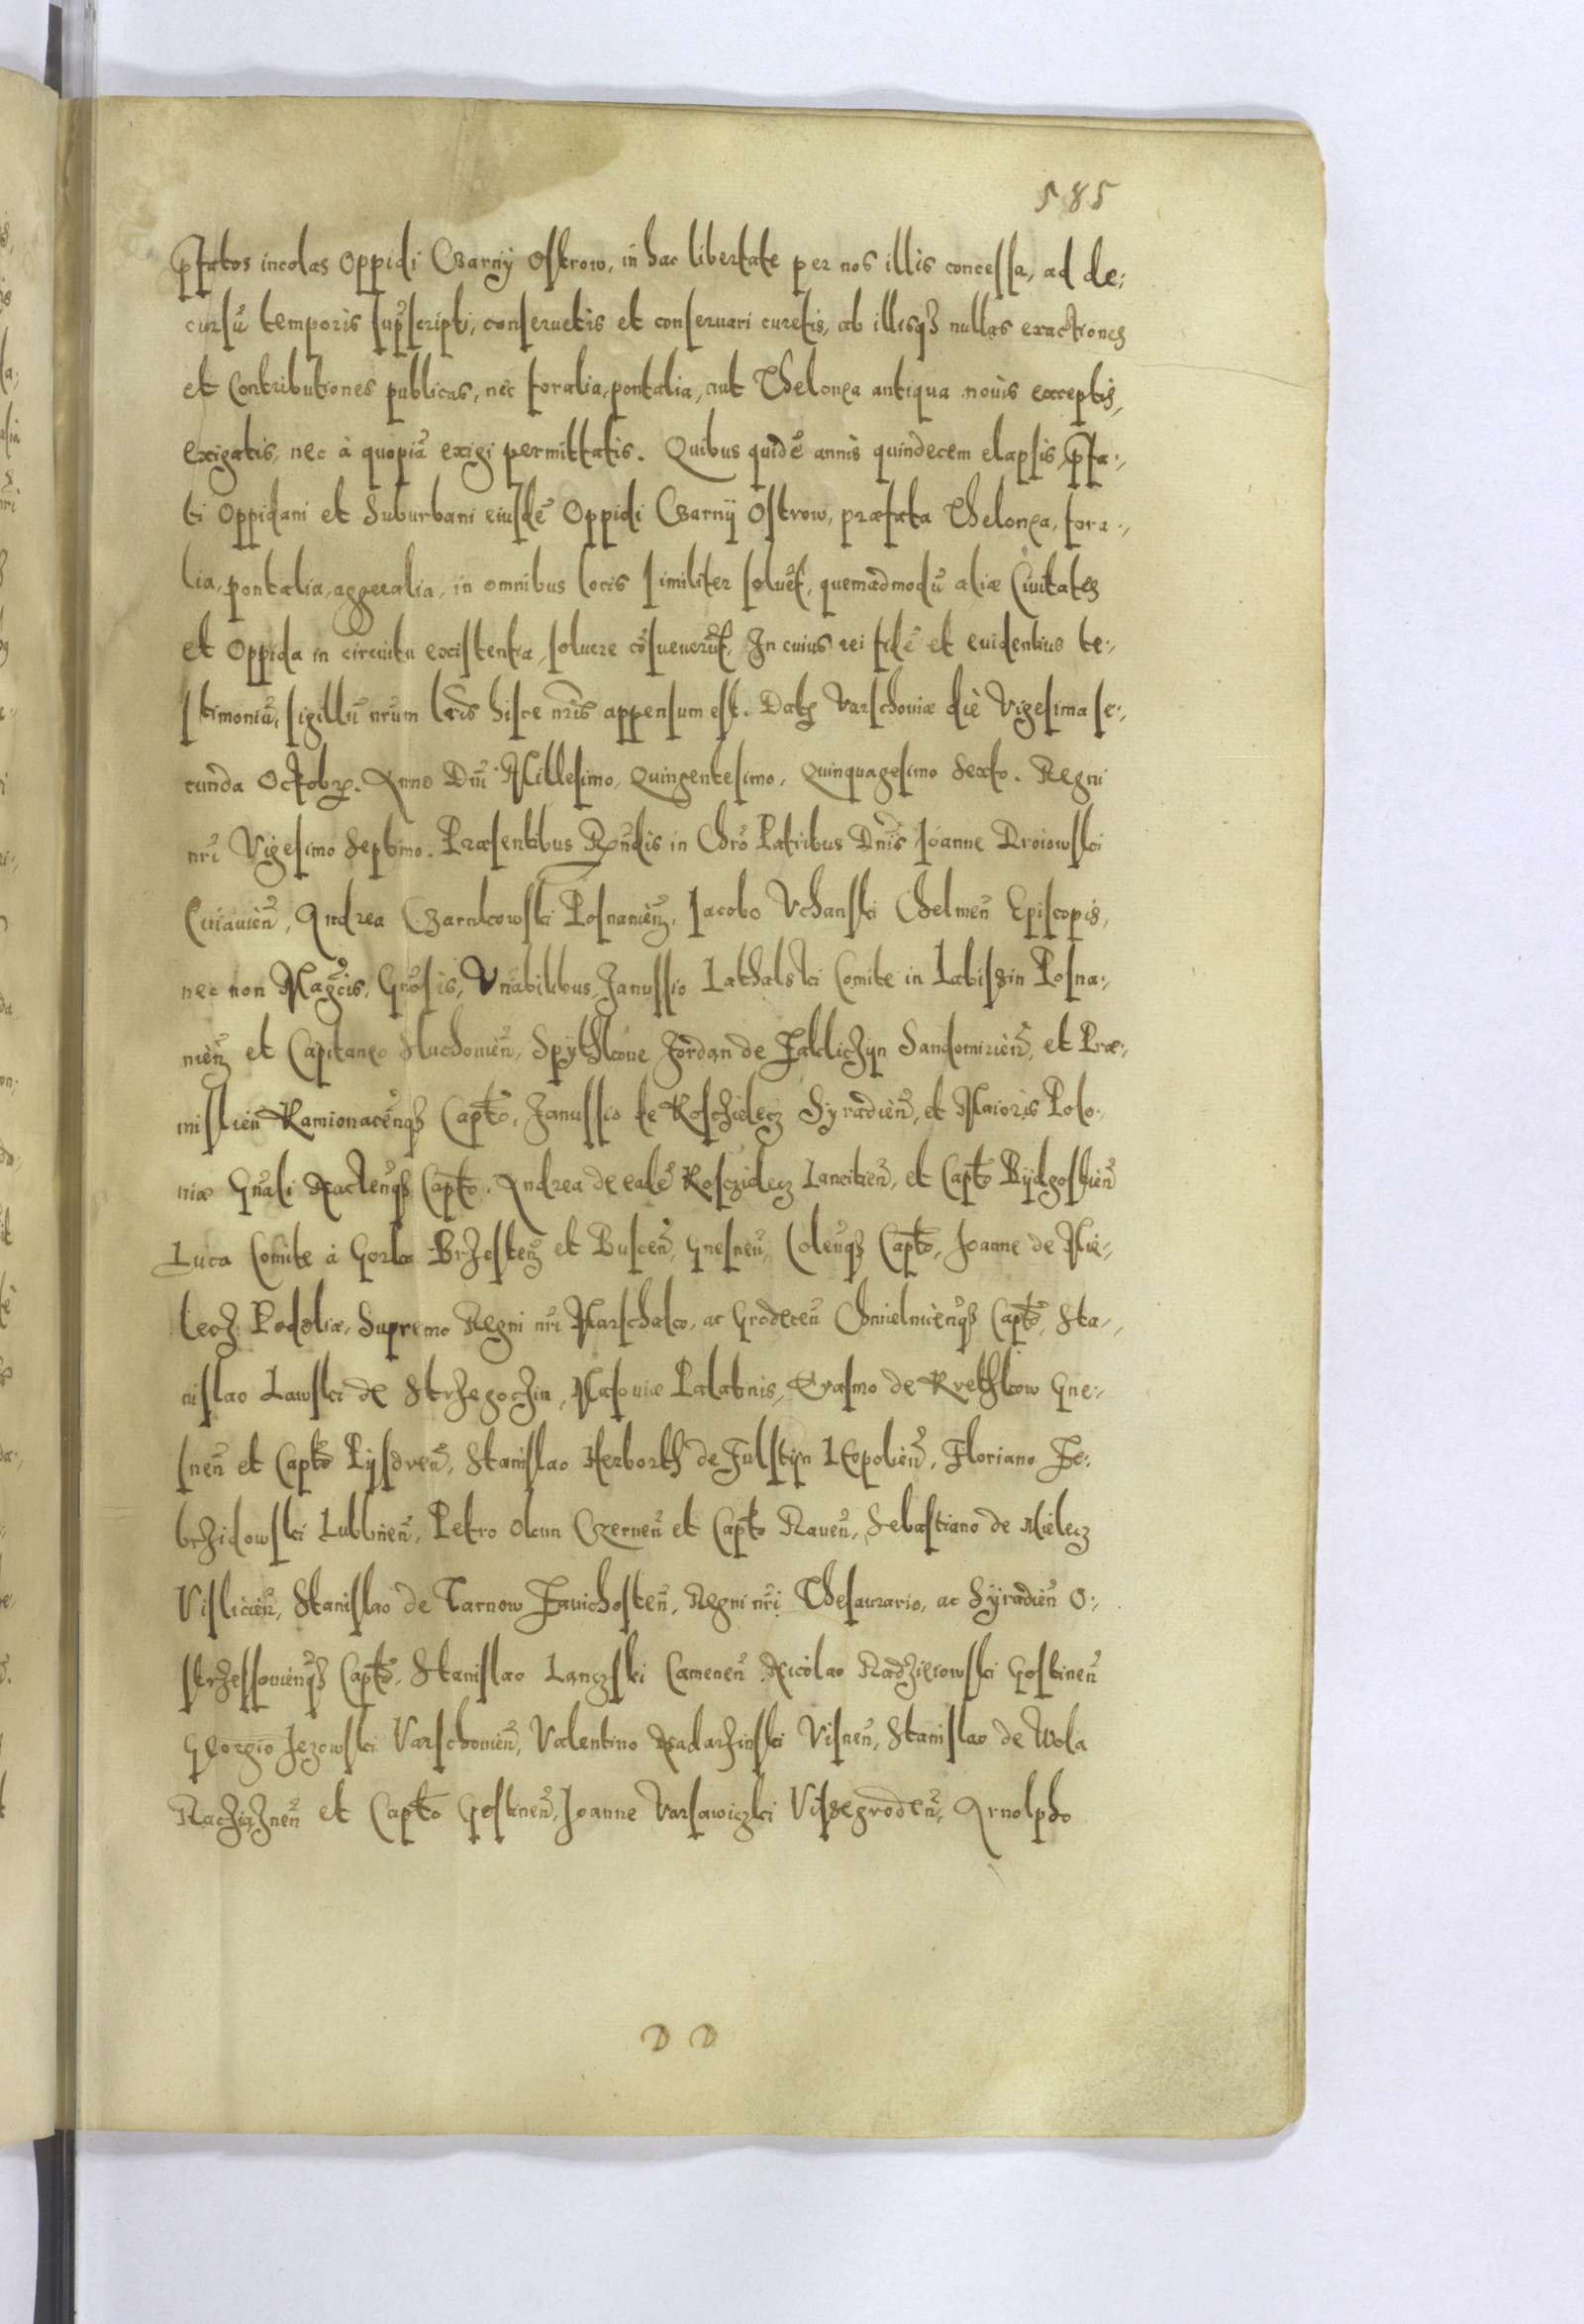 585
pfatos incolas Oppidi Czarnÿ Ostrow, in hac libertate per nos illis concessa, ad de:
cursũ temporis supscripti, conseruetis et conseruari curetis, ab illisqʒ nullas exactiones
et Contributiones publicas, nec foralia, pontalia, aut Thelonea antiqua nouis exceptis,
exigatis, nec à quopiã exigi permittatis. Quibus quidẽ annis quindecem elapsis, pfa:
ti Oppidani et Suburbani eiusdẽ Oppidi Czarnÿ Ostrow, præfata Thelonea, fora:
lia, pontalia, aggeralia, in omnibus locis similiter soluẽt, quemadmodũ aliæ Ciuitates
et Oppida in circuitu existentia, soluere cõsueuerũt. In cuius rei fidẽ et euidentius te:
stimoniũ, sigillũ nrum lris hisce nris appensum est. Datʒ Varschouiæ die Vigesima se:
cunda Octobr. Anno Dni Millesimo, Quingentesimo, Quinquagesimo Sexto. Regni
nri Vigesimo Septimo. Præsentibus Rndis in Chro Patribus Dnis Joanne Droiowski
Cuiauień, Andrea Czarnkowski Posnanieñ, Jacobo Vchanski Chelmeñ Episcopis,
nec non Magcis, Gnosis, Vnabilibus, Janussio Lathalski Comite in Labiszin Posna:
nieñ et Capitaneo Sluchouieñ, Spÿthkone Jordan de Zaklicʒÿn Sandomirieñ, et Præ:
mislieñ Kamionaceñqʒ Capto, Janussio de Koscʒielecʒ Syradieñ, et Maioris Polo:
niæ Gnali Nacleñqʒ Capto. Andrea de eadẽ Kosczielecʒ Lanciciẽñ, et Capto Bÿdgostieñ
Luca Comite à Gorka Brʒesteñ et Busceñ, Gnesneñ, Coleñqʒ Capto, Joanne de Mie:
lecʒ Podoliæ, Supremo Regni nri Marschalco, ac Grodeceñ Chmielnieñqʒ Capto, Sta:
nislao Lawski de Strʒegocʒin, Masouiæ Palatinis, Erasmo de Krethkow Gne:
sneñ et Capto Pÿsdreñ, Stanislao Herborth de Fulstÿn Leopolieñ, Floriano Ze:
brʒidowski Lublineñ, Petro Okun Czerneñ et Capto Raueñ, Sebastiano de Mielecʒ
Vislicieñ, Stanislao de Tarnow Zauichosteñ, Regni nri Thesaurario, ac Sÿradieñ O:
strʒessouieñqʒ Capto, Stanislao Lanczski Cameneñ, Nicolao Radʒieiowski Gostineñ
Georgio Jezowski Varschouieñ, Valentino Nadarʒinski Visneñ, Stanislao de Wola
Racʒiaʒneñ et Capto Gostineñ, Joanne Varsawiczki Visegrodeñ, Arnolpho
D D